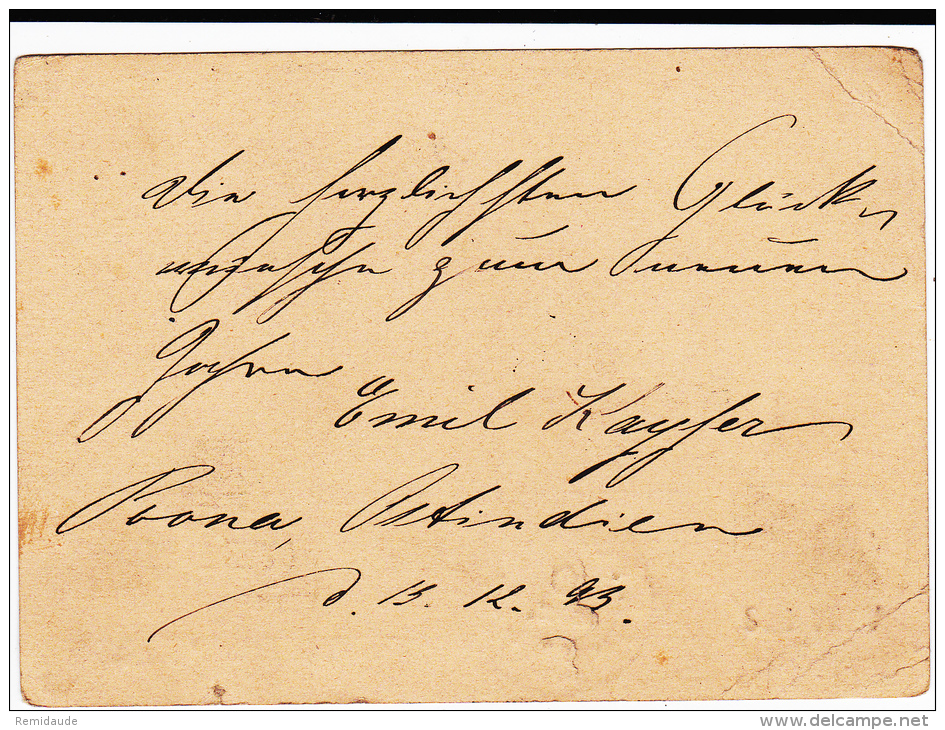 Die herzlichsten Glück-
wünsche zum neuen
Jahre
Emil Kayser
Poona, Ostindien
d. 13. 12. 93.
Remidaude
www.delcampe.net